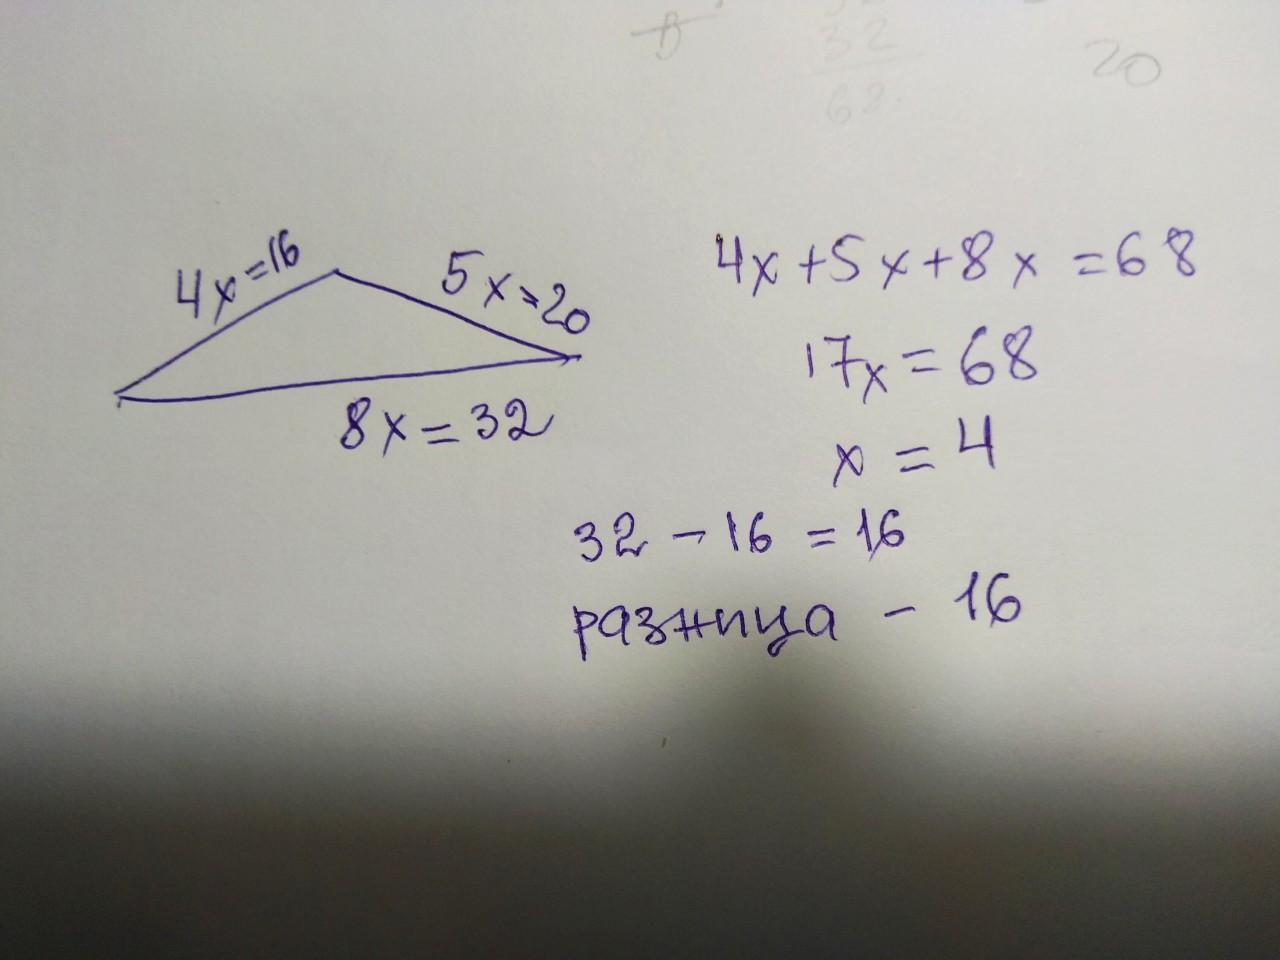 32
68
20
4x=16
5x=20
8x=32
4x+5x+8x=68
17x=68
x=4
32-16=16
разница - 16